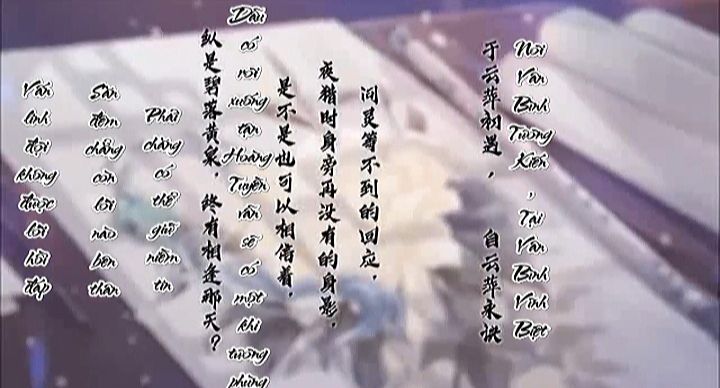 Nơi Vân Bình Tương Kiến , Tại Vân Bình Vĩnh Biệt
于云萍初遇， 自云萍永诀
问灵等不到的回应，
夜猎时身旁再没有的身影，
是不是也可以相信着，
Dẫu có nơi xuống tận Hoàng Tuyền vẫn sẽ có một khi tương phùng
纵是碧落黄泉，终有相逢那天？
Phải chăng có thể giữ niềm tin
Săn đêm chẳng còn lời nào bên thân
Vấn linh đợi không được lời hồi đáp